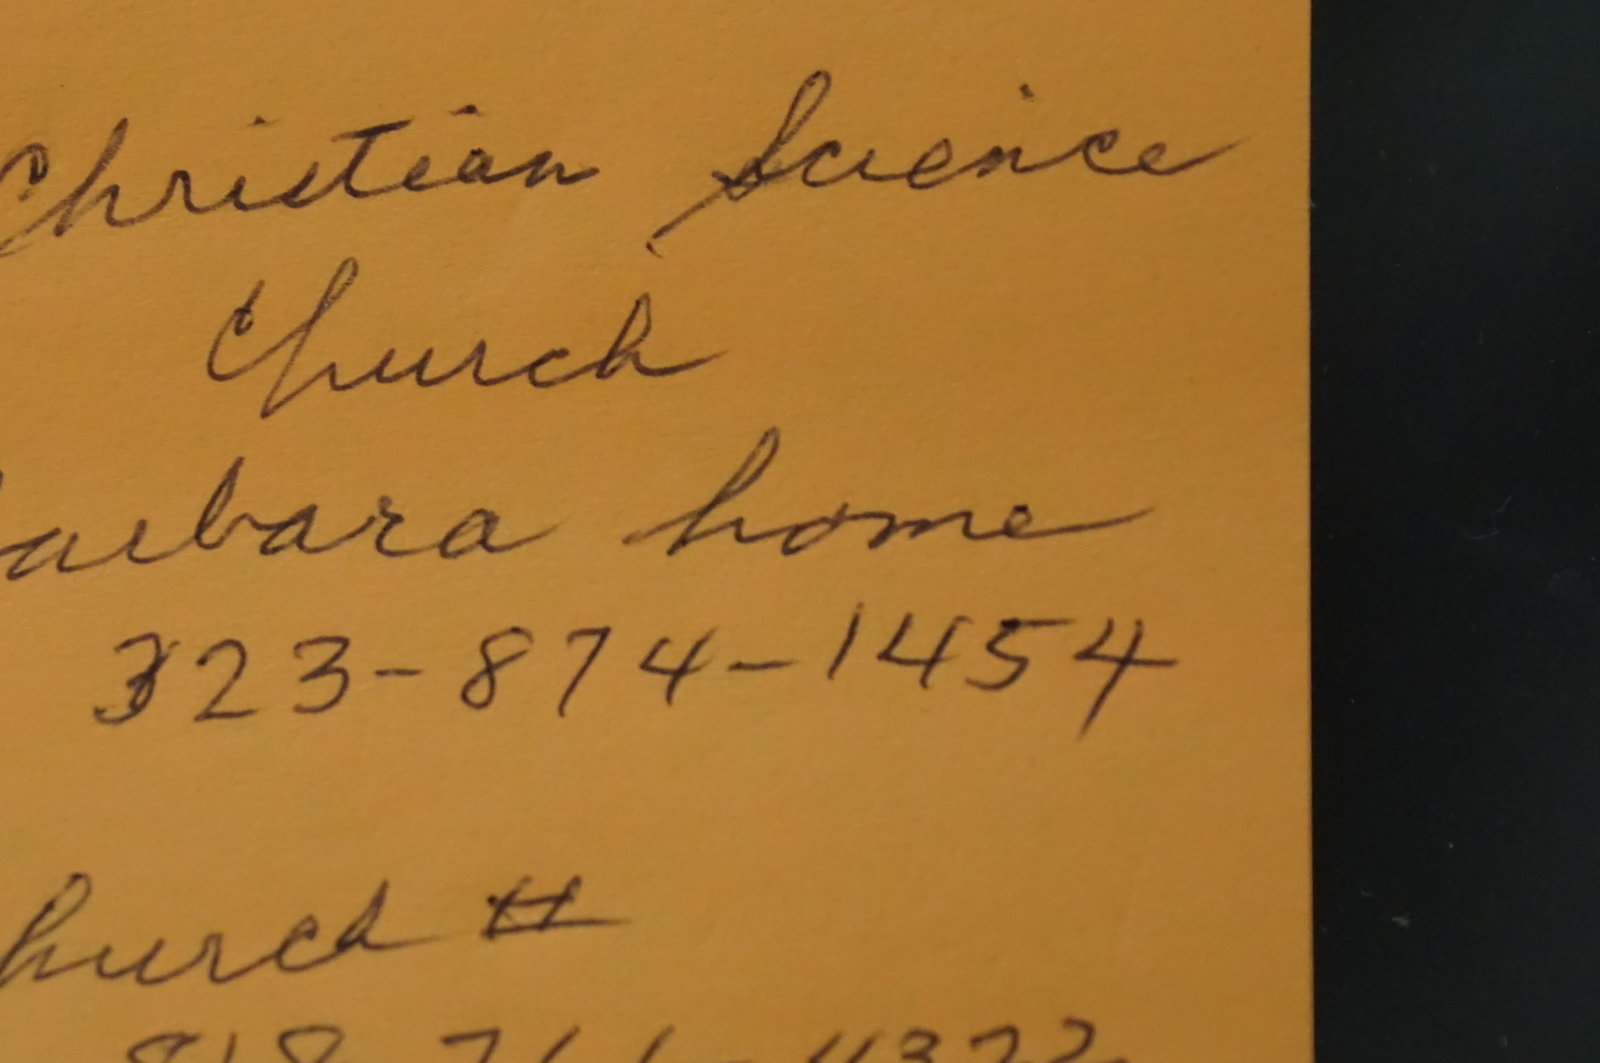 Christian Science
Church
Barbara home
323-874-1454
Church #